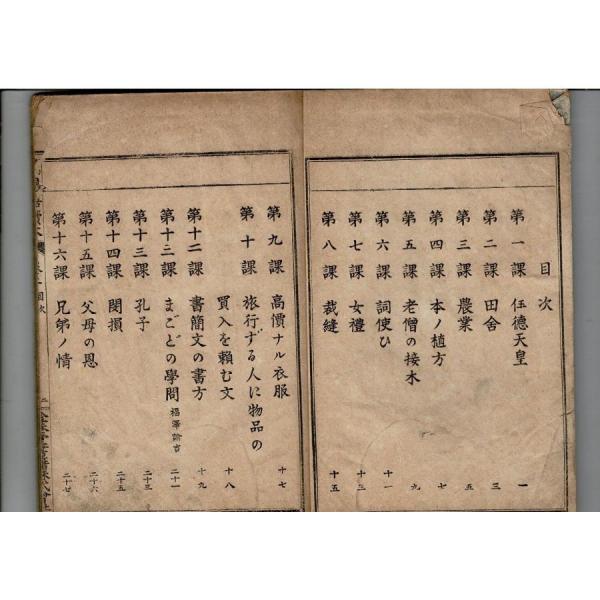 目次
第一課 仁德天皇 一
第二課 田舍 三
第三課 農業 五
第四課 木ノ植方 七
第五課 老僧の接木 九
第六課 詞使ひ 十一
第七課 女禮 十三
第八課 裁縫 十五
第九課 高價ナル衣服 十七
第十課 旅行ずる人に物品の
買入を賴む文 十八
第十二課 書簡文の書方 十九
第十二課 まことの學問 福澤諭吉 二十一
第十三課 孔子 二十三
第十四課 閔損 二十五
第十五課 父母の恩 二十六
第十六課 兄弟ノ情 二十七